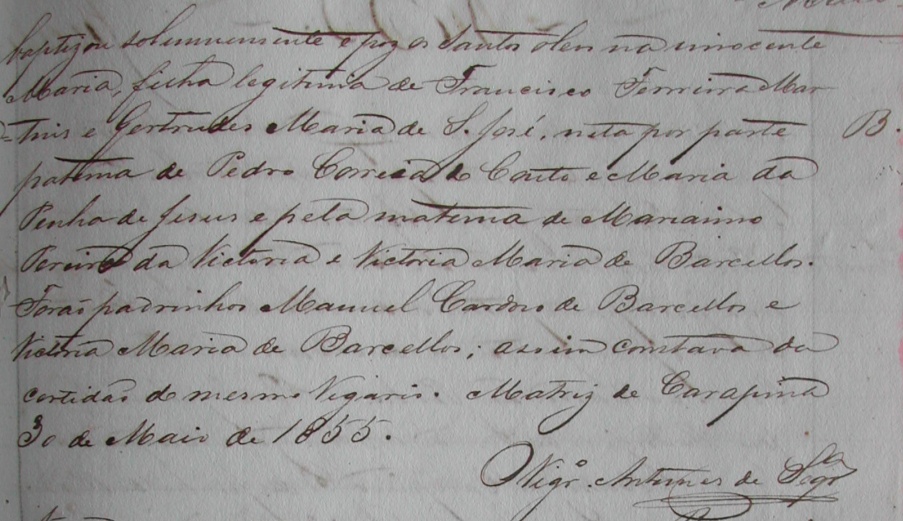 baptizou solemnemente e poz os Santos oleos na innocente
Maria, filha legitima de Francisco Ferreira Mar-
tins e Gertrudes Maria de S. José, neta por parte
B.
paterna de Pedro Correia do Couto e Maria da
Penha de Jesus e pela materna de Marianno
Pereira da Victoria e Victoria Maria de Barcellos.
Forão padrinhos Manuel Cardoso de Barcellos e
Victoria Maria de Barcellos; assim constava da
certidão do mesmo Vigario. Matriz de Carapina
30 de Maio de 1855.
Vigr.º Antunes de